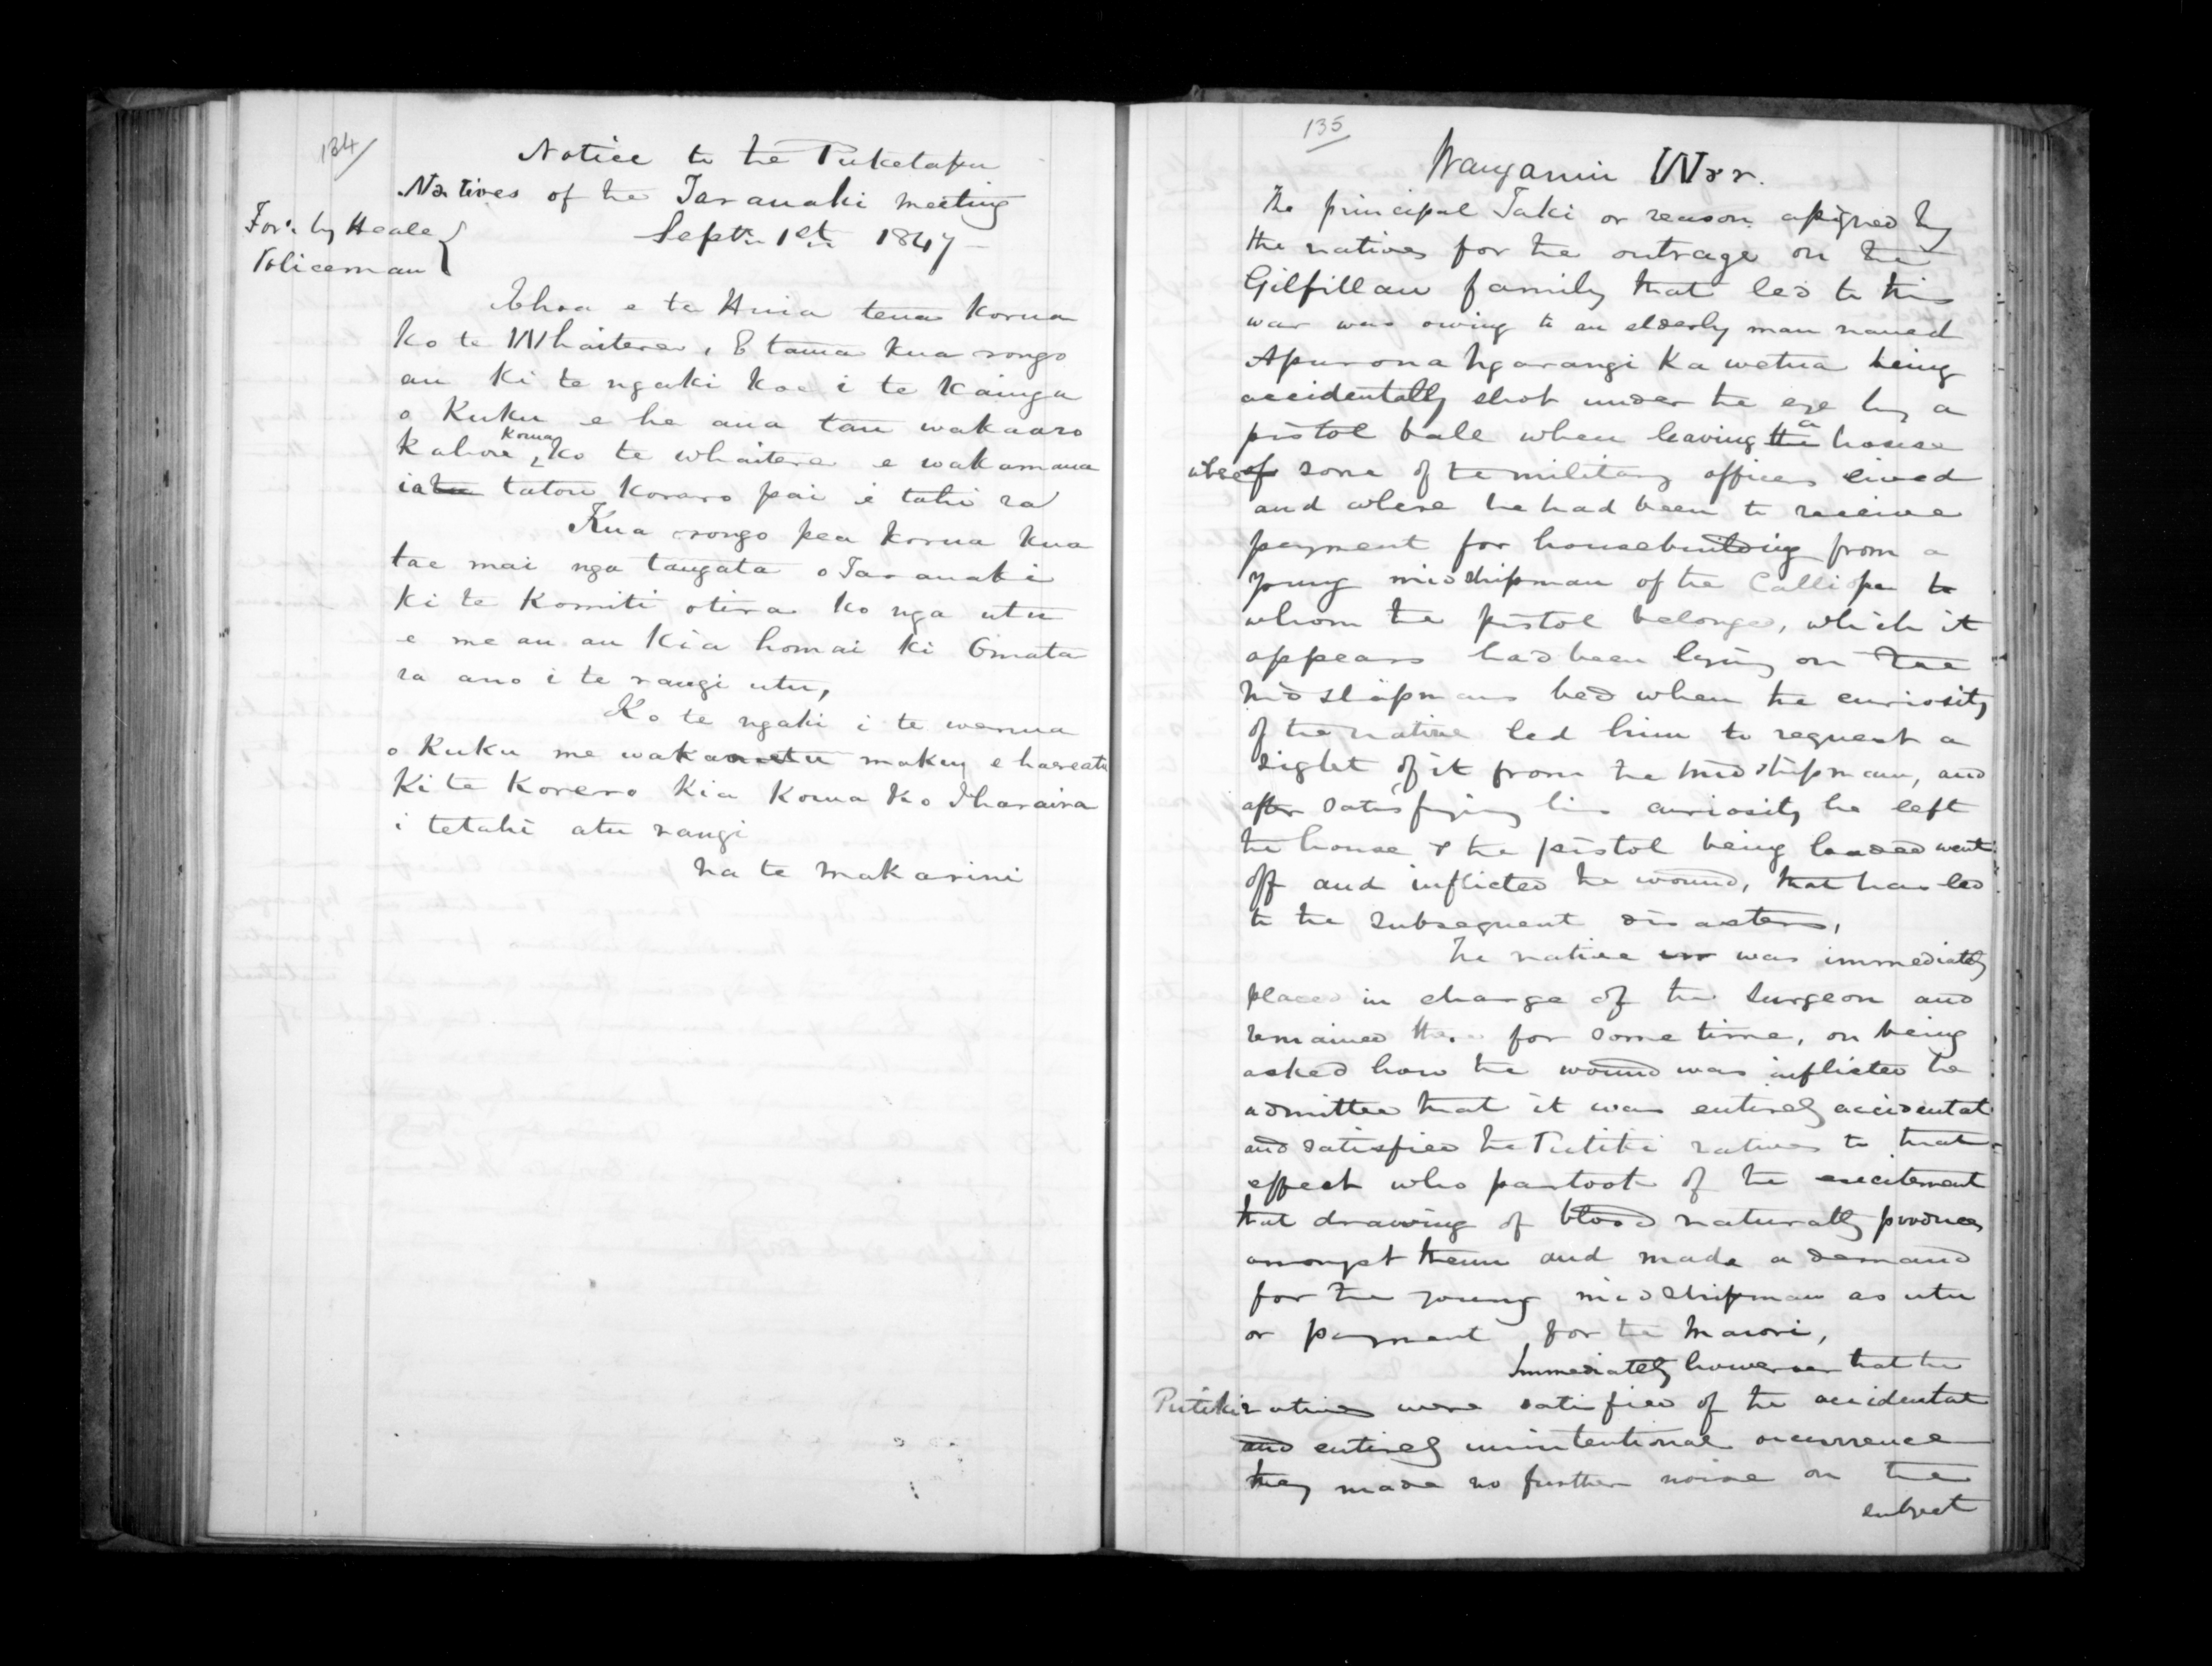 134/
Notice to the Puketapu
Natives of the Taranaki meeting
Septr. 1st. 1847 –
For:d by Heale
Policeman
Ehoa e te Huia tena korua
ko te Whaitere, E tama kua rongo
au ki te ngaki koe i te kainga
o Kuku e he ana tau wakaaro
kahore korua ko te whaitere e wakamana
ia tu tatou korero pai i tahi ra
Kua rongo pea korua kua
tae mai nga tangata o Taranaki
ki te Komiti otira ko nga utu
e me au au kia homai ki Omata
ra ano i te rangi utu,
Ko te ngaki i te wenua
o Kuku me waka makuy e haereatu
Ki te Korero Kia Koua ko Iharaira
i tetahi atu rangi
na te Makarini
135
Wanganui War.
The principal Taki or reason assigned by
the natives for the outrage on the
Gilfillan family that led to this
war was owing to an elderly man named
Apurona Ngarangi Ka wetua being
accidentally shot under the eye by a
pistol ball when leaving the a house
where of some of the military officers lived
and where he had been to receive
payment for housebuilding from a
young midshipman of the Calliope to
whom the pistol belongs, which it
appears had been lying on the
midshipmans bed when the curiosity
of the native led him to request a
sight of it from the midshipman, and
after satisfying his curiosity he left
the house & the pistol being loaded went
off and inflicted the wound, that has led
to the subsequent disasters,
The native was immediately
placed in charge of the Surgeon and
remained there for some time, on being
asked how the wound was inflicted he
admitted that it was entirely accidental
and satisfied the Putiki natives to that
effect who partook of the excitement
that drawing of blood naturally produces
amongst them and made a demand
for the young midshipman as utu
or payment for the Maori,
Immediately however that the
Putiki natives were satisfied of the accidental
and entirely unintentional occurrence
they made no further noise on the
subject